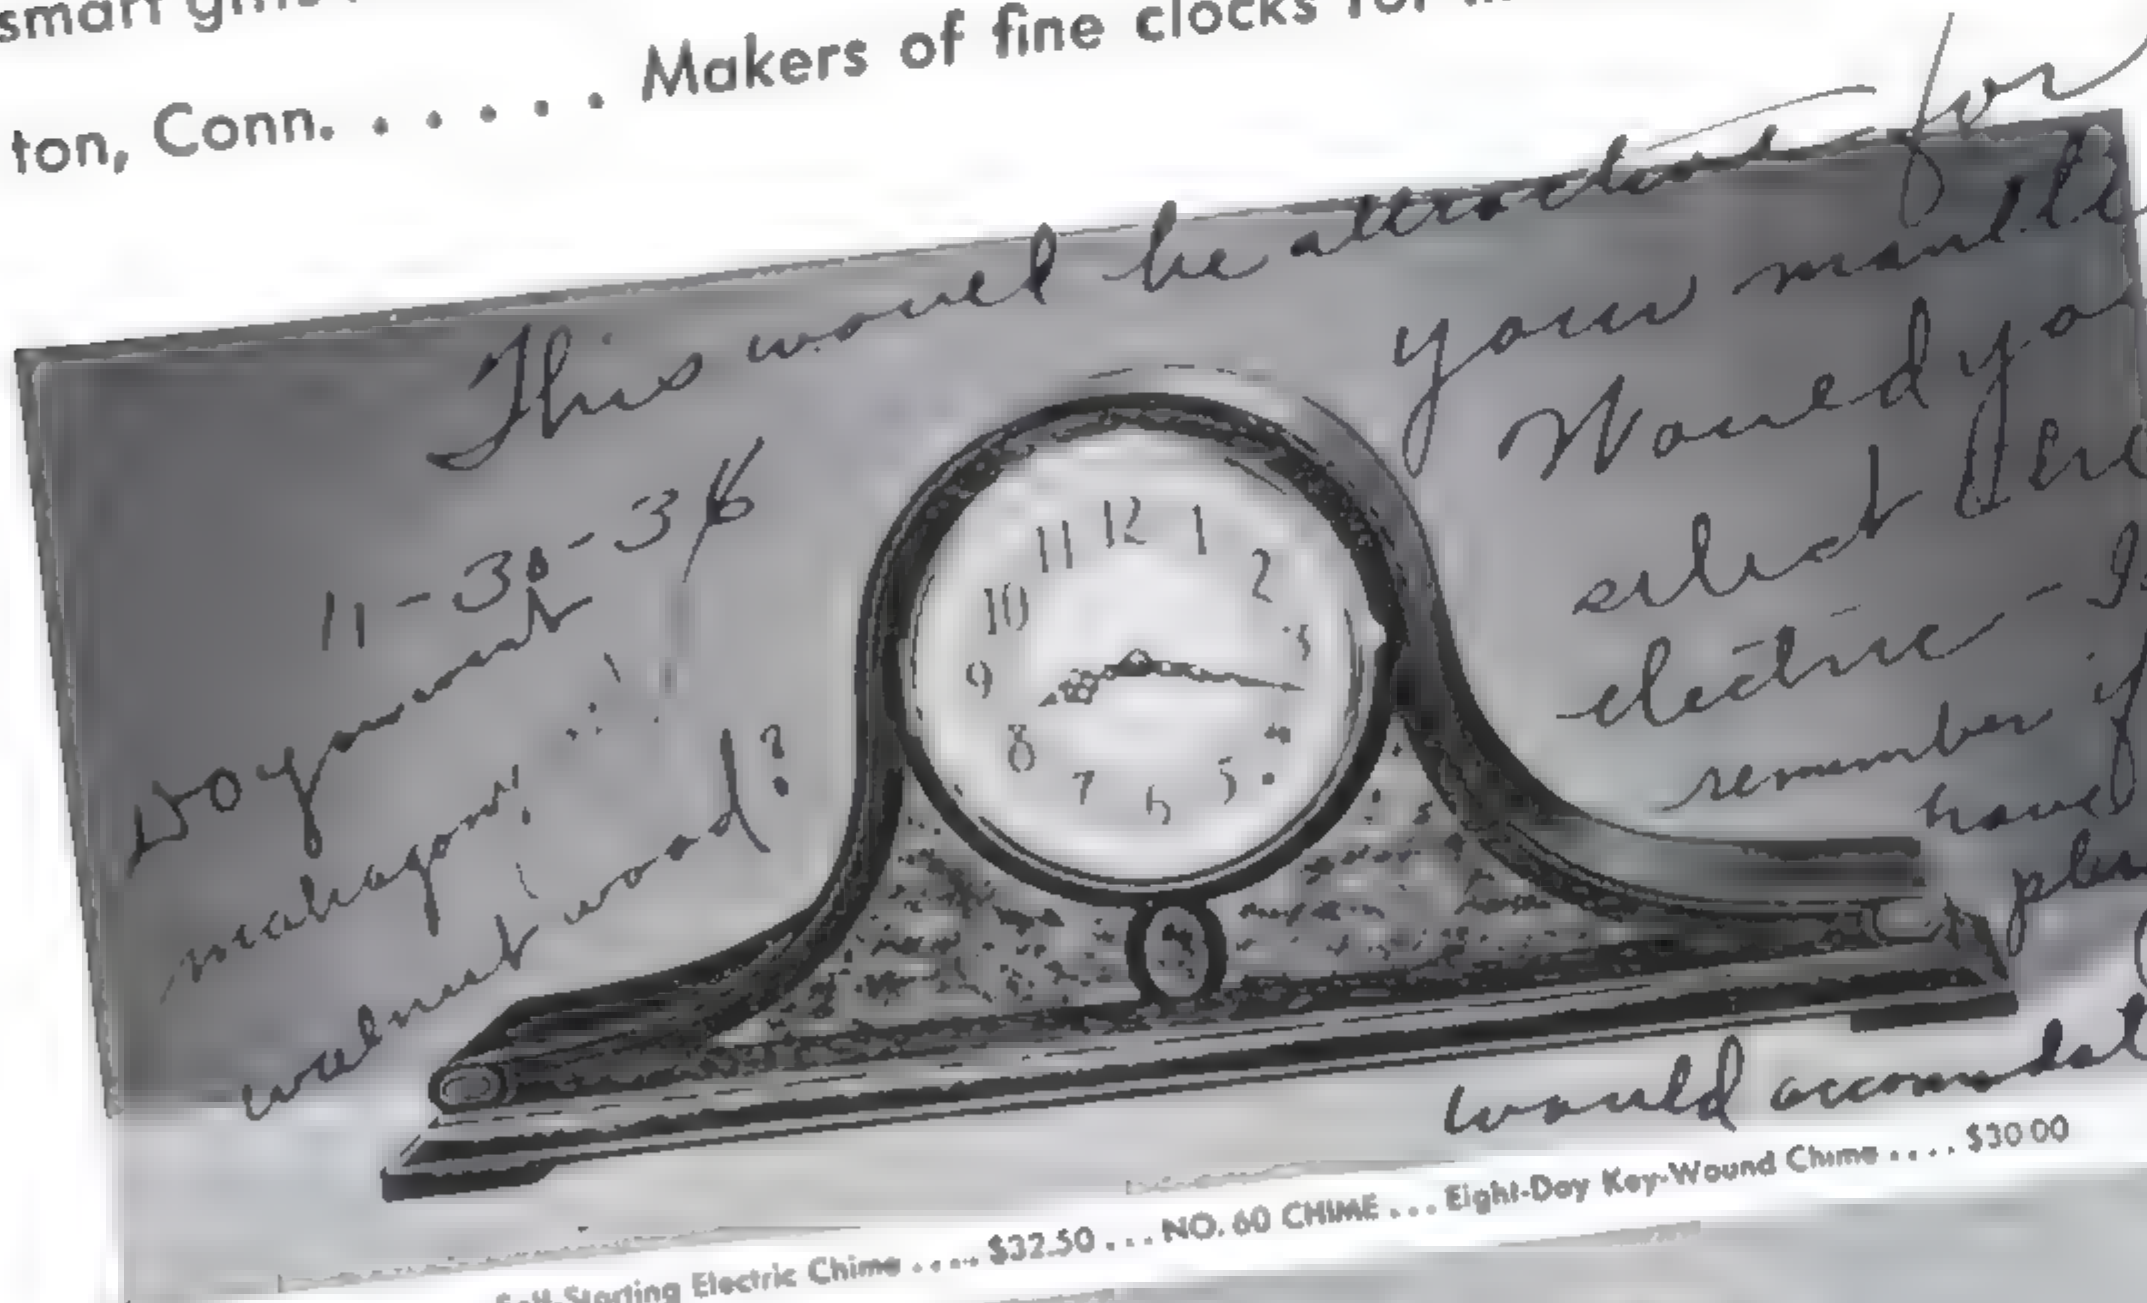 smart
ton, Conn. . . . . . Makers of fine clocks for
This would be attractive for
your mantle
Would yo
select
electric - I
remember if
have
would accomodat
11-30-36
Do you want
mahagony
walnut wood?
11 12 1
10 2
9 3
8
7 6 5
Self-Starting Electric Chime . . . . . $32.50 . . . NO. 60 CHIME . . . Eight-Day Key-Wound Chime . . . . $30 00